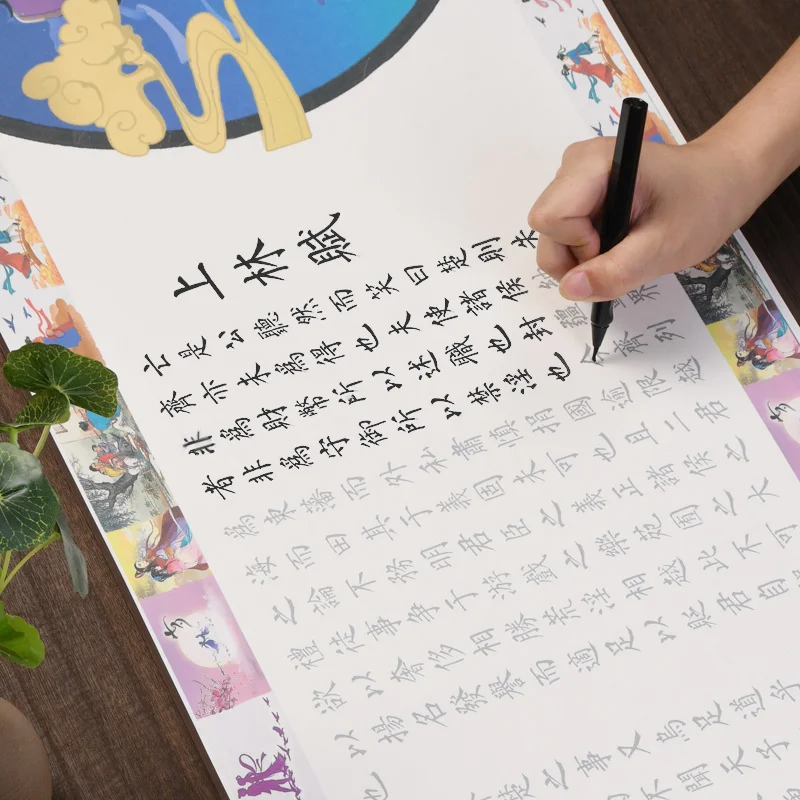 上林賦
亡是公聽然而笑曰楚則失
齊亦未為得也夫使諸侯納
非為財幣所以述職也封疆界
者非為守御所以禁淫也今齊列
為東藩而外私肅慎捐國逾限越
海而田其于義固未可也且二君
之論不務明君臣之義正諸侯之
禮徒事爭于游戲之樂苑囿之大
欲以奢侈相勝荒淫相越此不可
以揚名發譽而適足以貶君自
也楚之事又烏足道乎
不聞天子